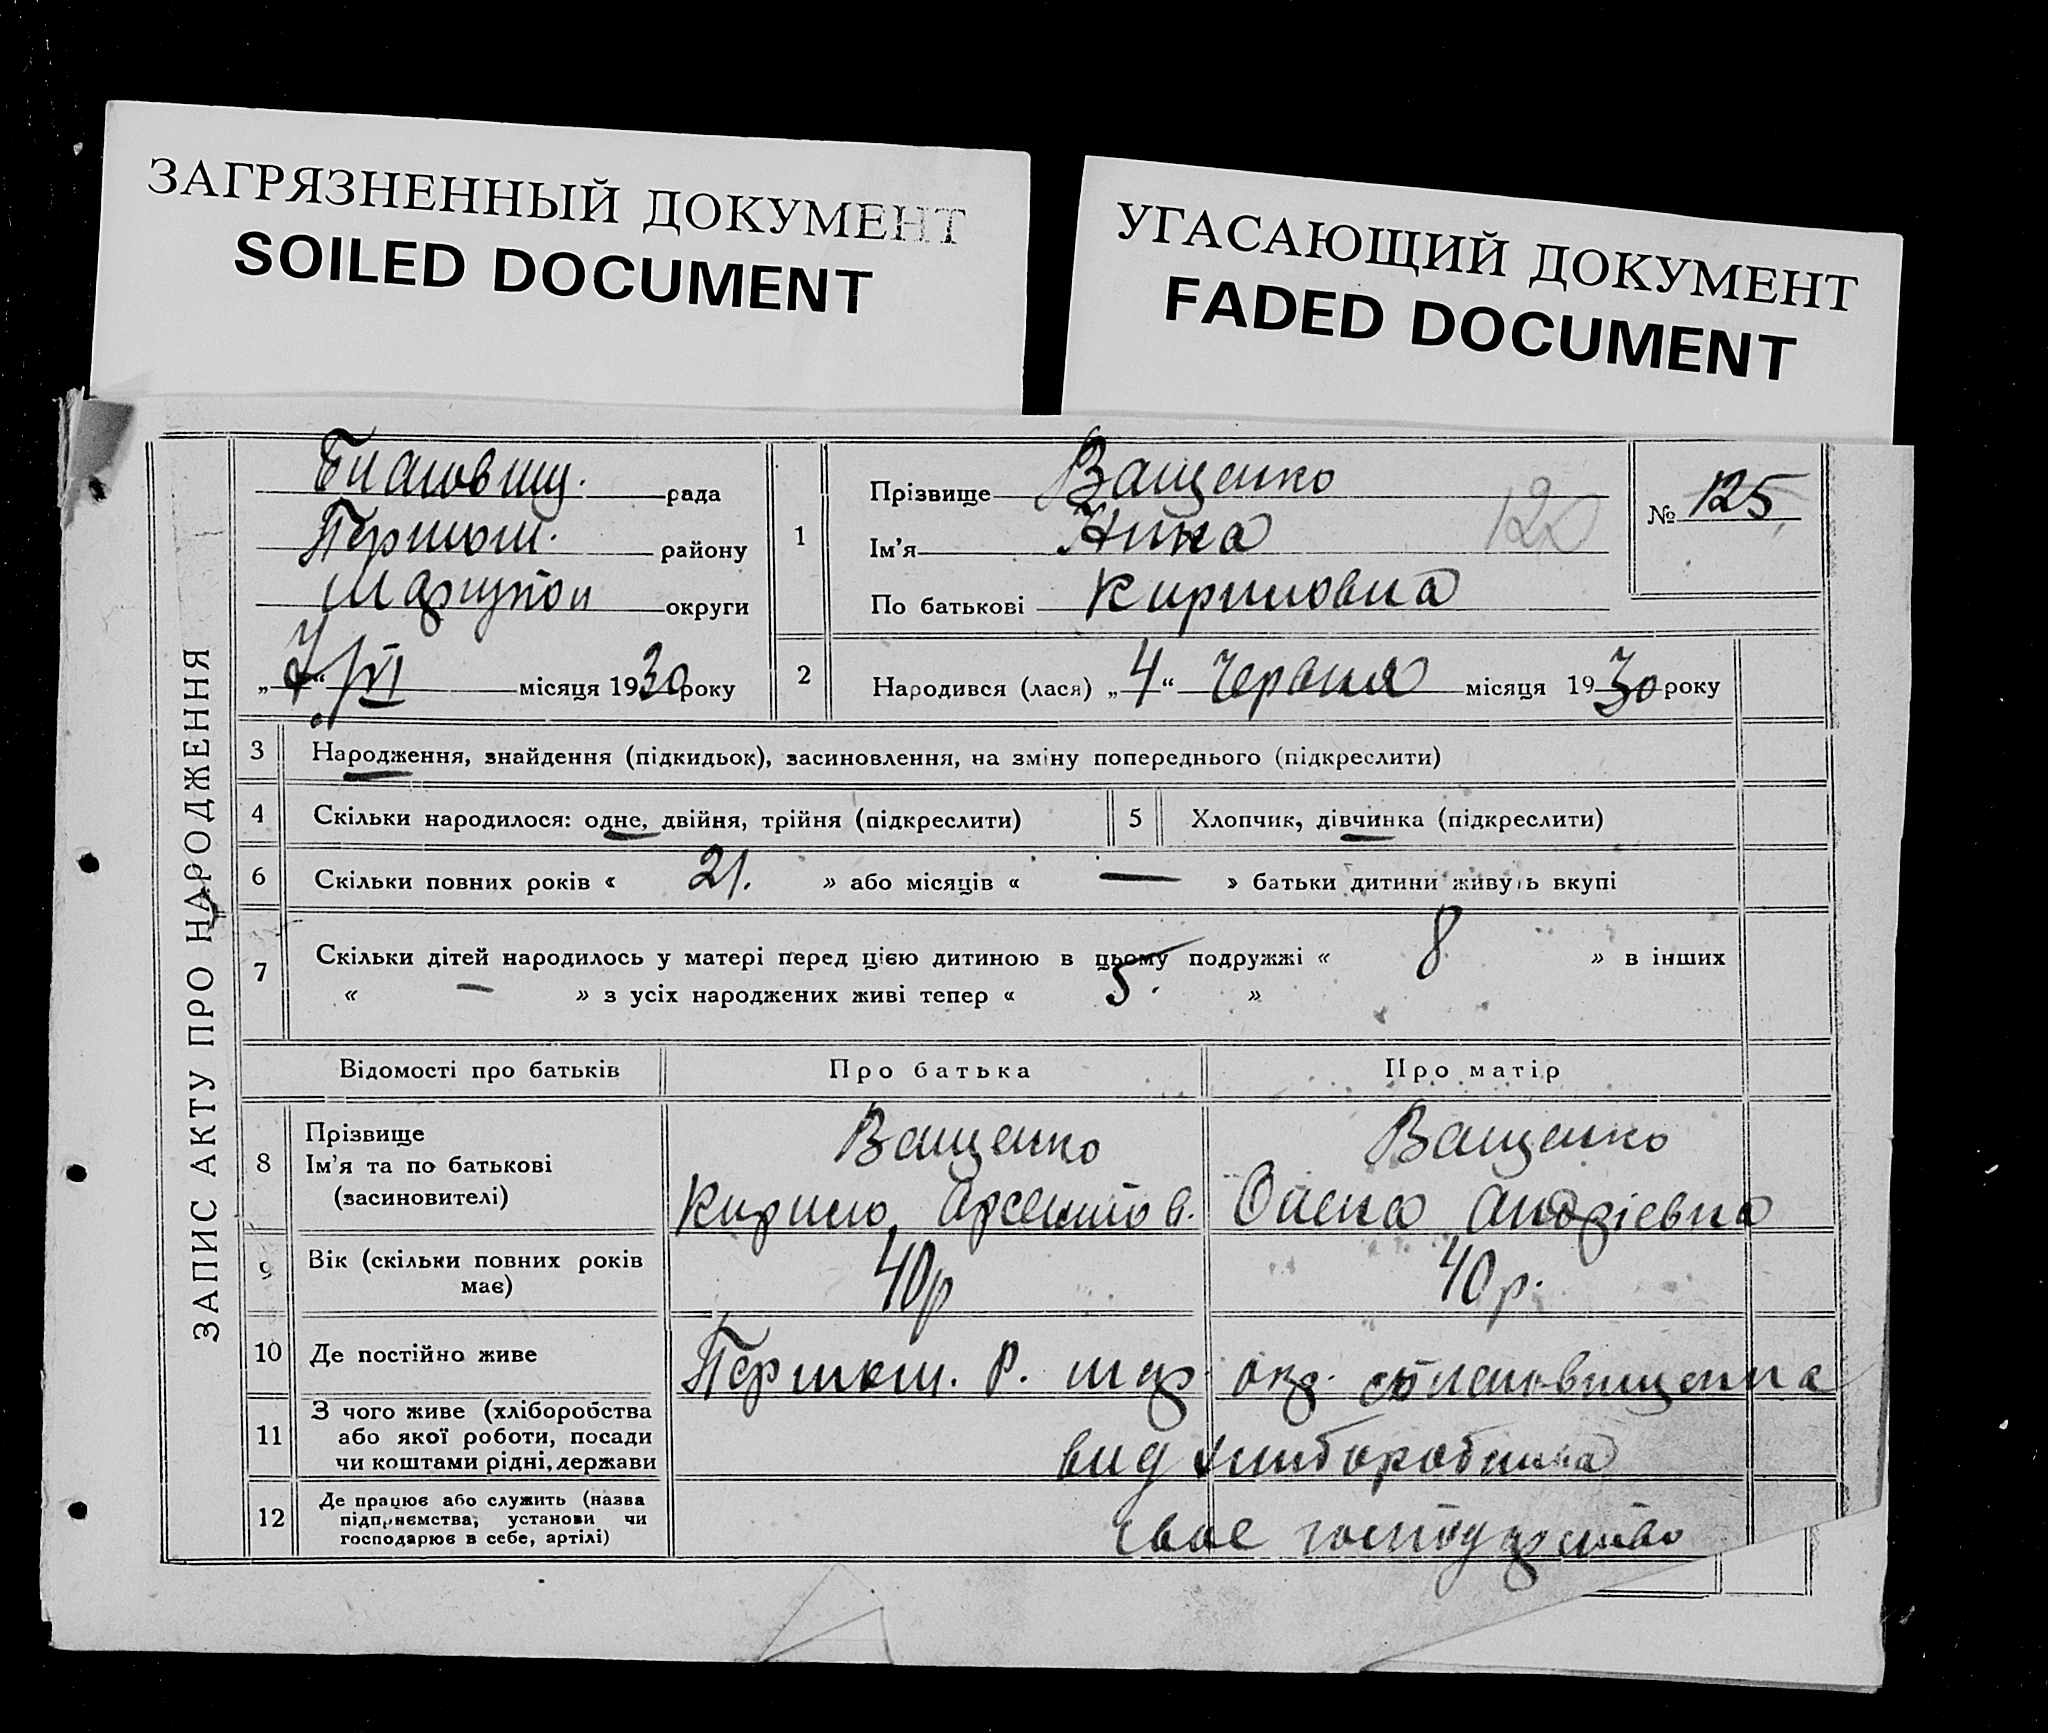 ЗАГРЯЗНЕННЫЙ ДОКУМЕНТ
SOILED DOCUMENT
УГАСАЮЩИЙ ДОКУМЕНТ
FADED DOCUMENT
ЗАПИС АКТУ ПРО НАРОДЖЕННЯ
рада
району
округи
місяця 1930 року
1
Прізвище Ващенко
Ім'я Нина
По батькові Кириловна
120
№ 125
2
Народився (лася) „4“ Червня місяця 1930 року
3 Народження, знайдення (підкидьок), засиновлення, на зміну попереднього (підкреслити)
4 Скільки народилося: одне, двійня, трійня (підкреслити)
5 Хлопчик, дівчинка (підкреслити)
6 Скільки повних років « 21. » або місяців « — » батьки дитини живуть вкупі
7 Скільки дітей народилось у матері перед цією дитиною в цьому подружжі « 8 » в інших
« — » з усіх народжених живі тепер « 5. »
Відомості про батьків
Про батька
Про матір
8 Прізвище
Ім'я та по батькові
(засиновителі)
Ващенко
Кирило Арсентов.
Ващенко
Олена Андріевна
9 Вік (скільки повних років
має)
40р
40р.
10 Де постійно живе
Першот. Р. Мар. окр.
11 З чого живе (хліборобства
або якої роботи, посади
чи коштами рідні, держави
вид хлиборобства
12 Де працює або служить (назва
підприємства, установи чи
господарює в себе, артілі)
свое господарство